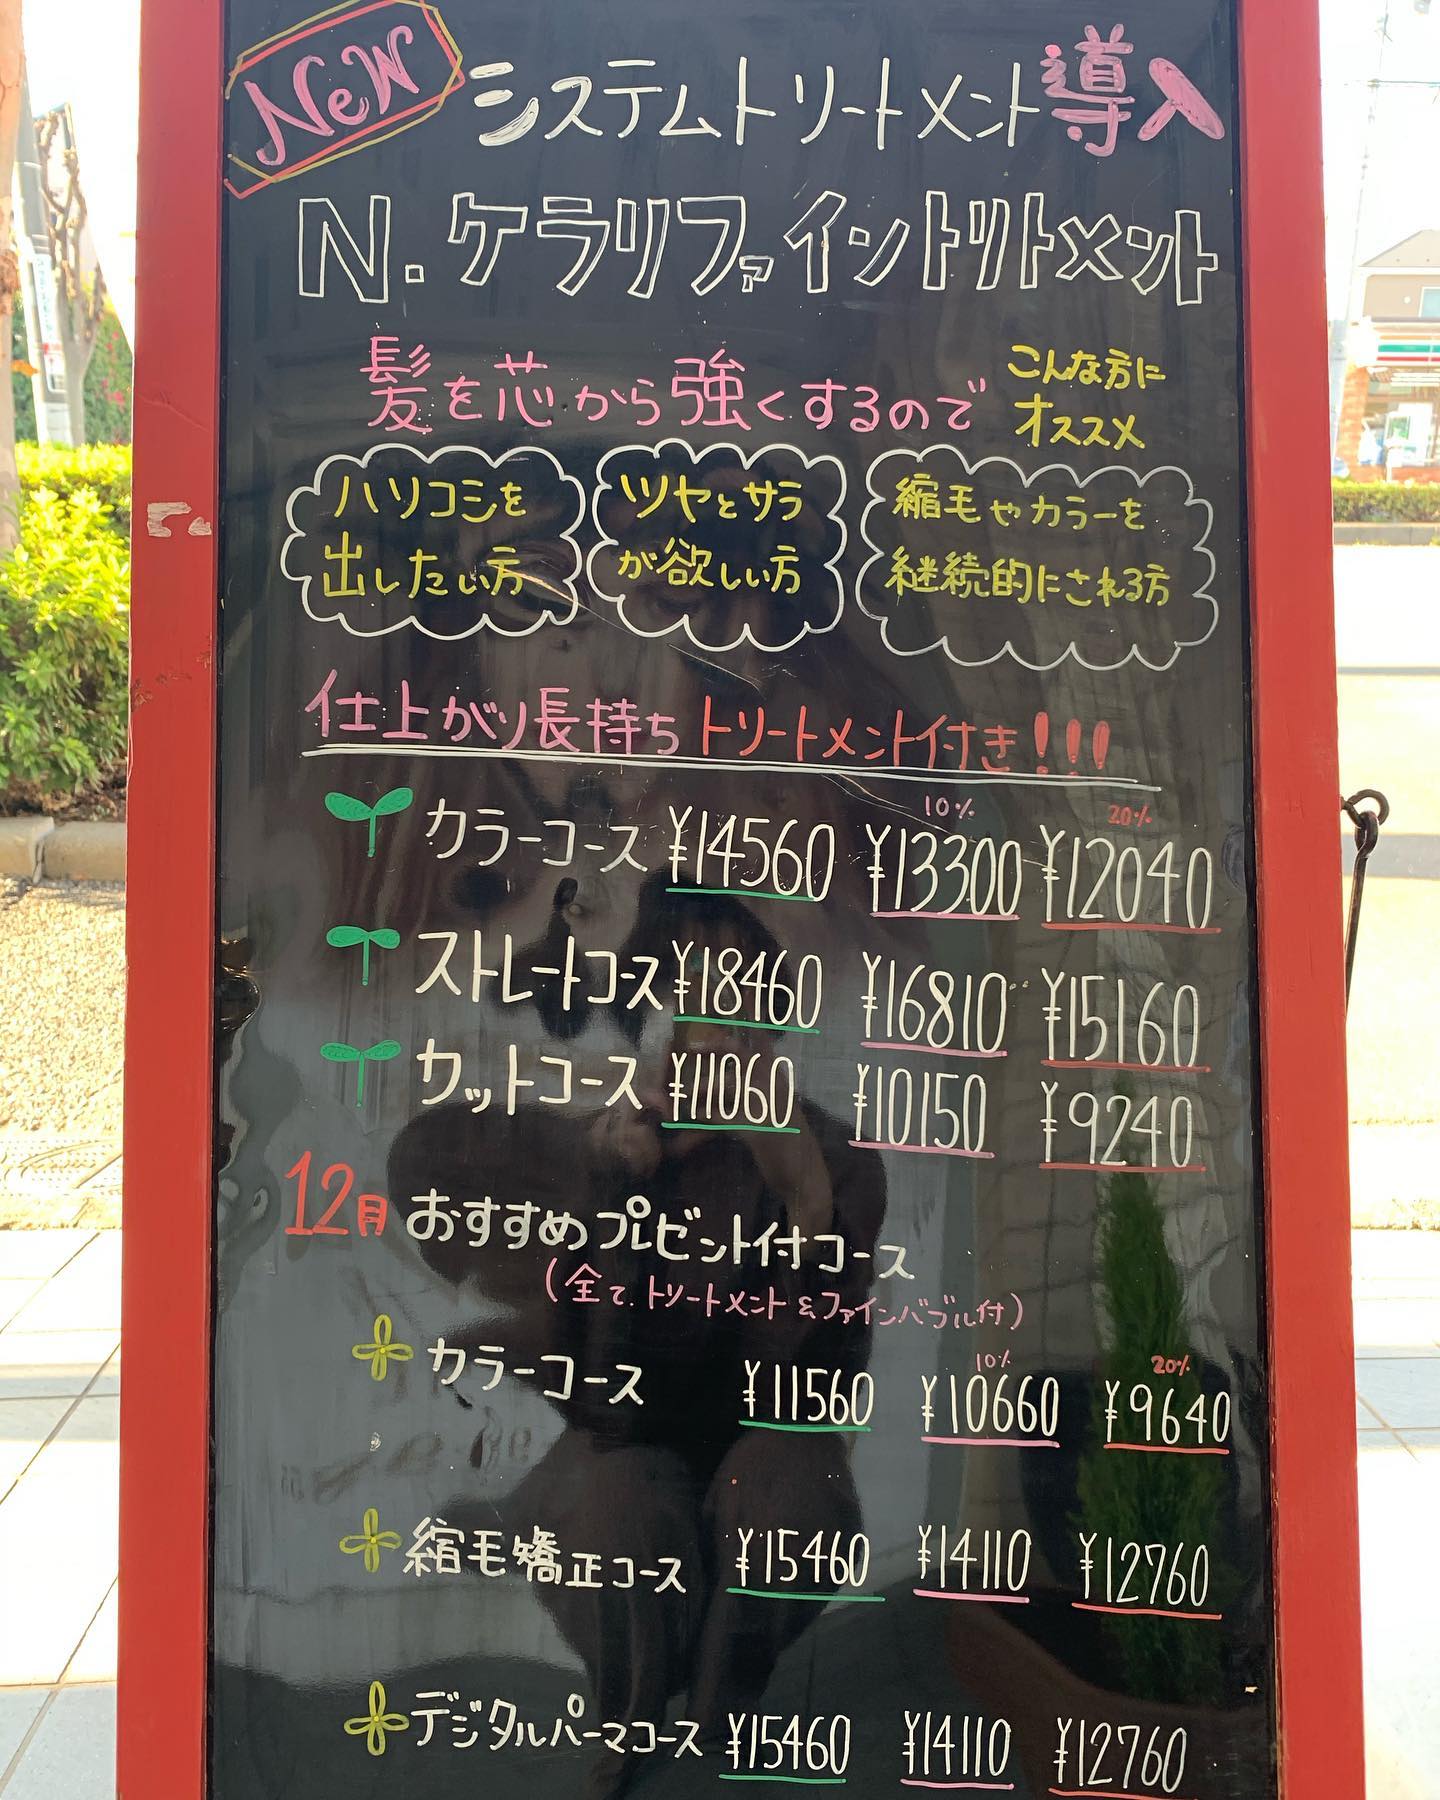 NeW システムトリートメント導入
N.ケラリファイントリトメント
髪を芯から強くするので
こんな方に
オススメ
ハリコシを
出したい方
ツヤとサラ
が欲しい方
縮毛やカラーを
継続的にされる方
仕上がり長持ちトリートメント付き!!!
10% 20%
カラーコース ¥14560 ¥13300 ¥12040
ストレートコース ¥18460 ¥16810 ¥15160
カットコース ¥11060 ¥10150 ¥9240
12月 おすすめプレゼント付コース
(全て.トリートメント&ファインバブル付)
10% 20%
カラーコース ¥11560 ¥10660 ¥9640
縮毛矯正コース ¥15460 ¥14110 ¥12760
デジタルパーマコース ¥15460 ¥14110 ¥12760